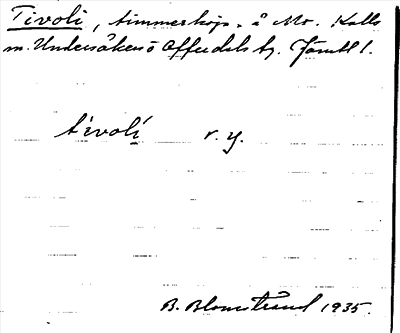 Tivoli, timmerkoja å Mo. Kalls
m. Undersåkers o Offerdals tg. Jämtl l.
tivolí r. y.
B. Blomstrand 1935.